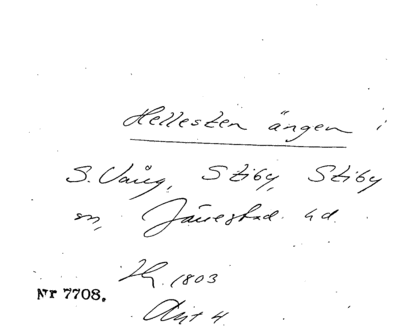 Hellesten ängen i
S. Vång, Stiby, Stiby
sn, Järrestad hd.
1803
Nr 7708.
Akt 4.